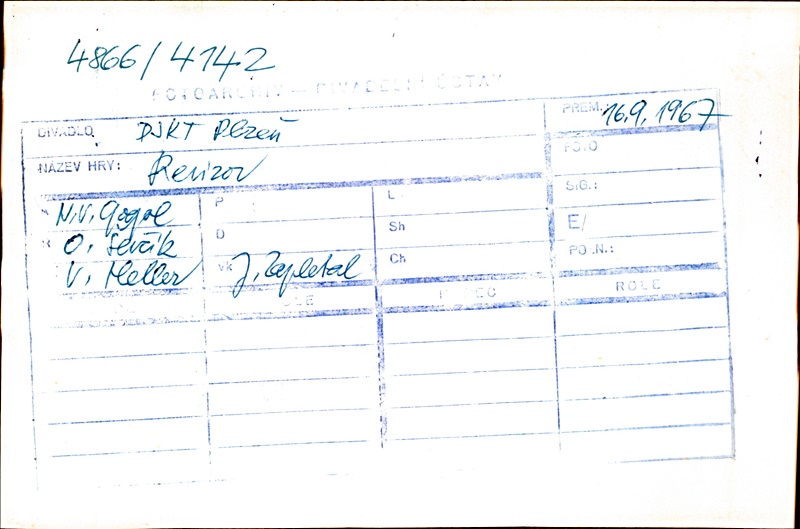 4866/4142
FOTOARCHIV — DIVADELNÍ ÚSTAV
DIVADLO DJKT Plzeň
PREM. 16.9.1967
FOTO
NÁZEV HRY: Revizor
SIG.:
A N.V. Gogol
P
L
E/
R O. Ševčík
D
Sh
PO N.:
V. Heller
vk J. Zapletal
Ch
ROLE
ROLE